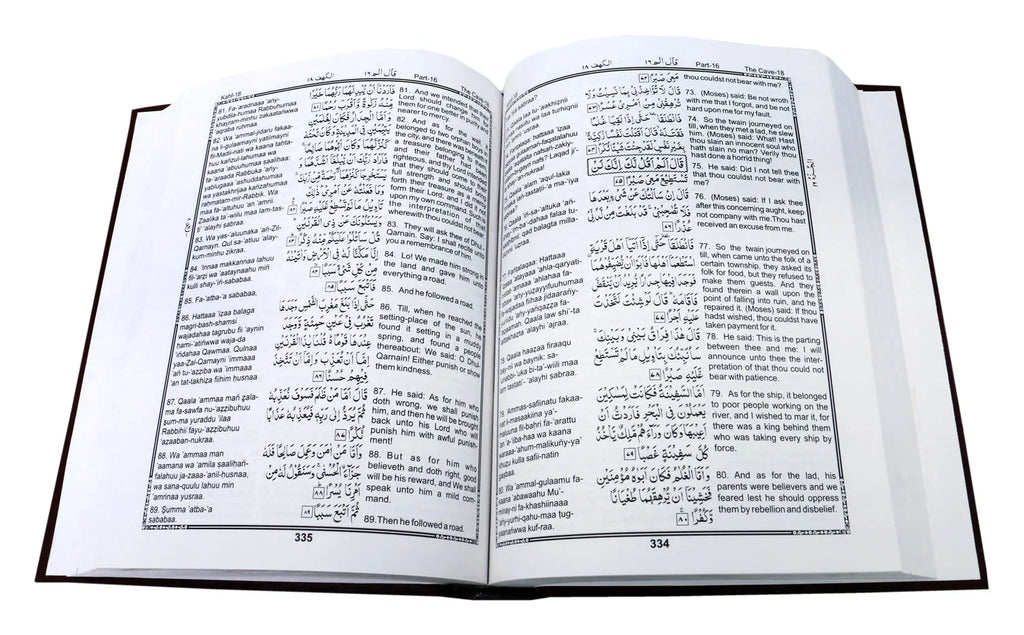 The Cave-18
Part-16
قال الم ١٦
الكهف ١٨
thou couldst not bear with me?
73. (Moses) said: Be not wroth
with me that I forgot, and be not
hard upon me for my fault.
74. So the twain journeyed on
till, when they met a lad, he slew
him. (Moses) said: What! Hast
thou slain an innocent soul who
hath slain no man? Verily thou
hast done a horrid thing!
75. He said: Did I not tell thee
that thou couldst not bear with
me?
76. (Moses) said: If I ask thee
after this concerning aught, keep
not company with me. Thou hast
received an excuse from me.
77. So the twain journeyed on
till, when came unto the folk of a
certain township, they asked its
folk for food, but they refused to
make them guests. And they
found therein a wall upon the
point of falling into ruin, and he
repaired it. (Moses) said: If thou
hadst wished, thou couldst have
taken payment for it.
78. He said: This is the parting
between thee and me: I will
announce unto thee the inter-
pretation of that thou could not
bear with patience.
79. As for the ship, it belonged
to poor people working on the
river, and I wished to mar it, for
there was a king behind them
who was taking every ship by
force.
80. And as for the lad, his
parents were believers and we
feared lest he should oppress
them by rebellion and disbelief.
مَعِيَ صَبْرًا ٧٢
قَالَ لَا تُؤَاخِذْنِي بِمَا نَسِيتُ وَلَا
تُرْهِقْنِي مِنْ أَمْرِي عُسْرًا ٧٣
فَانْطَلَقَا حَتَّى إِذَا لَقِيَا غُلَامًا
فَقَتَلَهُ قَالَ أَقَتَلْتَ نَفْسًا زَكِيَّةً
بِغَيْرِ نَفْسٍ لَقَدْ جِئْتَ شَيْئًا نُكْرًا ٧٤
قَالَ أَلَمْ أَقُلْ لَكَ إِنَّكَ لَنْ
تَسْتَطِيعَ مَعِيَ صَبْرًا ٧٥
قَالَ إِنْ سَأَلْتُكَ عَنْ شَيْءٍ بَعْدَهَا
فَلَا تُصَاحِبْنِي قَدْ بَلَغْتَ مِنْ لَدُنِّي
عُذْرًا ٧٦
فَانْطَلَقَا حَتَّى إِذَا أَتَيَا أَهْلَ قَرْيَةٍ
اسْتَطْعَمَا أَهْلَهَا فَأَبَوْا أَنْ يُضَيِّفُوهُمَا
فَوَجَدَا فِيهَا جِدَارًا يُرِيدُ أَنْ يَنْقَضَّ
فَأَقَامَهُ قَالَ لَوْ شِئْتَ لَتَّخَذْتَ
عَلَيْهِ أَجْرًا ٧٧
قَالَ هَذَا فِرَاقُ بَيْنِي وَبَيْنِكَ
سَأُنَبِّئُكَ بِتَأْوِيلِ مَا لَمْ تَسْتَطِعْ
عَلَيْهِ صَبْرًا ٧٨
أَمَّا السَّفِينَةُ فَكَانَتْ لِمَسَاكِينَ
يَعْمَلُونَ فِي الْبَحْرِ فَأَرَدْتُ أَنْ
أَعِيبَهَا وَكَانَ وَرَاءَهُمْ مَلِكٌ يَأْخُذُ
كُلَّ سَفِينَةٍ غَصْبًا ٧٩
وَأَمَّا الْغُلَامُ فَكَانَ أَبَوَاهُ مُؤْمِنَيْنِ
فَخَشِينَا أَنْ يُرْهِقَهُمَا طُغْيَانًا
وَكُفْرًا ٨٠
78. Qaala haazaa firaaqu
79. 'Ammas-safiinatu fakaa-
80. Wa 'ammal-gulaamu fa-
334
Kahf-18
الكهف ١٨
قال الم ١٦
Part-16
The Cave-18
81. And we intended that their
Lord should change him for
them for one better in purity and
nearer to mercy.
82. And as for the wall, it
belonged to two orphan boys in
the city, and there was beneath it
a treasure belonging to them,
and their father had been
righteous, and thy Lord intended
that they should come to their
full strength and should bring
forth their treasure as a mercy
form their Lord; and I did it not
upon my own command. Such is
the interpretation of that
wherewith thou couldst not bear.
83. They will ask thee of Dhul-
Qarnain. Say: I shall recite unto
you a remembrance of him.
84. Lo! We made him strong in
the land and gave him unto
everything a road.
85. And he followed a road.
86. Till, when he reached the
setting-place of the sun, he
found it setting in a muddy
spring, and found a people
thereabout: We said: O Dhul-
Qarnain! Either punish or show
them kindness.
87. He said: As for him who
doth wrong, we shall punish
him, and then he will be brought
back unto his Lord who will
punish him with awful punish-
ment!
88. But as for him who
believeth and doth right, good
will be his reward, and We shall
speak unto him a mild com-
mand.
89. Then he followed a road.
فَأَرَدْنَا أَنْ يُبْدِلَهُمَا رَبُّهُمَا خَيْرًا
مِنْهُ زَكَاةً وَأَقْرَبَ رُحْمًا ٨١
وَأَمَّا الْجِدَارُ فَكَانَ لِغُلَامَيْنِ
يَتِيمَيْنِ فِي الْمَدِينَةِ وَكَانَ تَحْتَهُ
كَنْزٌ لَهُمَا وَكَانَ أَبُوهُمَا صَالِحًا
فَأَرَادَ رَبُّكَ أَنْ يَبْلُغَا أَشُدَّهُمَا وَ
يَسْتَخْرِجَا كَنْزَهُمَا رَحْمَةً مِنْ رَبِّكَ
وَمَا فَعَلْتُهُ عَنْ أَمْرِي ذَلِكَ
تَأْوِيلُ مَا لَمْ تَسْطِعْ عَلَيْهِ صَبْرًا ٨٢
وَيَسْأَلُونَكَ عَنْ ذِي الْقَرْنَيْنِ
قُلْ سَأَتْلُو عَلَيْكُمْ مِنْهُ ذِكْرًا ٨٣
إِنَّا مَكَّنَّا لَهُ فِي الْأَرْضِ وَآتَيْنَاهُ
مِنْ كُلِّ شَيْءٍ سَبَبًا ٨٤
فَأَتْبَعَ سَبَبًا ٨٥
حَتَّى إِذَا بَلَغَ مَغْرِبَ الشَّمْسِ وَجَدَهَا
تَغْرُبُ فِي عَيْنٍ حَمِئَةٍ وَوَجَدَ
عِنْدَهَا قَوْمًا قُلْنَا يَا ذَا الْقَرْنَيْنِ
إِمَّا أَنْ تُعَذِّبَ وَإِمَّا أَنْ تَتَّخِذَ
فِيهِمْ حُسْنًا ٨٦
قَالَ أَمَّا مَنْ ظَلَمَ فَسَوْفَ نُعَذِّبُهُ
ثُمَّ يُرَدُّ إِلَى رَبِّهِ فَيُعَذِّبُهُ عَذَابًا
نُكْرًا ٨٧
وَأَمَّا مَنْ آمَنَ وَعَمِلَ صَالِحًا فَلَهُ
جَزَاءً الْحُسْنَى وَسَنَقُولُ لَهُ مِنْ
أَمْرِنَا يُسْرًا ٨٨
ثُمَّ أَتْبَعَ سَبَبًا ٨٩
81. Fa-'aradnaaa 'añy-
yubdila-humaa Rabbuhumaa
khayram-minhu zakaatanwwa
'aqraba ruhmaa.
82. Wa 'ammal-jidaru fakaa-
na li-gulaamayni yatiimayni
fil-Madii-nati wa kaana tahta-
huu kañzul-lahumaa wa
kaana 'abuuhumaa saalihaa:
fa-'araada Rabbuka 'añy-
yablugaaa 'ashuddahumaa
wa yastakhrijaa kañzahumaa
rahmatam-mir-Rabbik. Wa
maa fa-'altuhuu 'an 'amrii.
Zaalika ta'-wiilu maa lam-tas-
ti' 'alayhi sabraa.
83. Wa yas-'aluunaka 'añ-Zil-
Qarnayn. Qul sa-'atluu 'alay-
kum-minhu zikraa.
84. 'Innaa makkannaa lahuu
fil-'arzi wa 'aataynaahu miñ
kulli shay-'iñ-sababaa.
85. Fa-'atba-'a sababaa.
86. Hattaaa 'izaa balaga
magri-bash-shamsi
wajadahaa tagrubu fii 'aynin
ham-'atiñwwa waja-da
'iñdahaa Qawmaa. Qulnaa
yaa-Zal-Qarnayni 'immaaa
'añ tu-'azziba wa 'immaaa
'an tat-takhiza fiihim husnaa
87. Qaala 'ammaa mañ zala-
ma fa-sawfa nu-'azzibuhuu
summa yuraddu 'ilaa
Rabbihii fayu-'azzibuhuu
'azaaban-nukraa.
88. Wa 'ammaa man
'aamana wa 'amila saalihañ-
falahuu ja-zaaa-'anil-husnaa,
wa sana-quulu lahuu min
'amrinaa yusraa.
89. Summa 'atba-'a
sababaa.
335